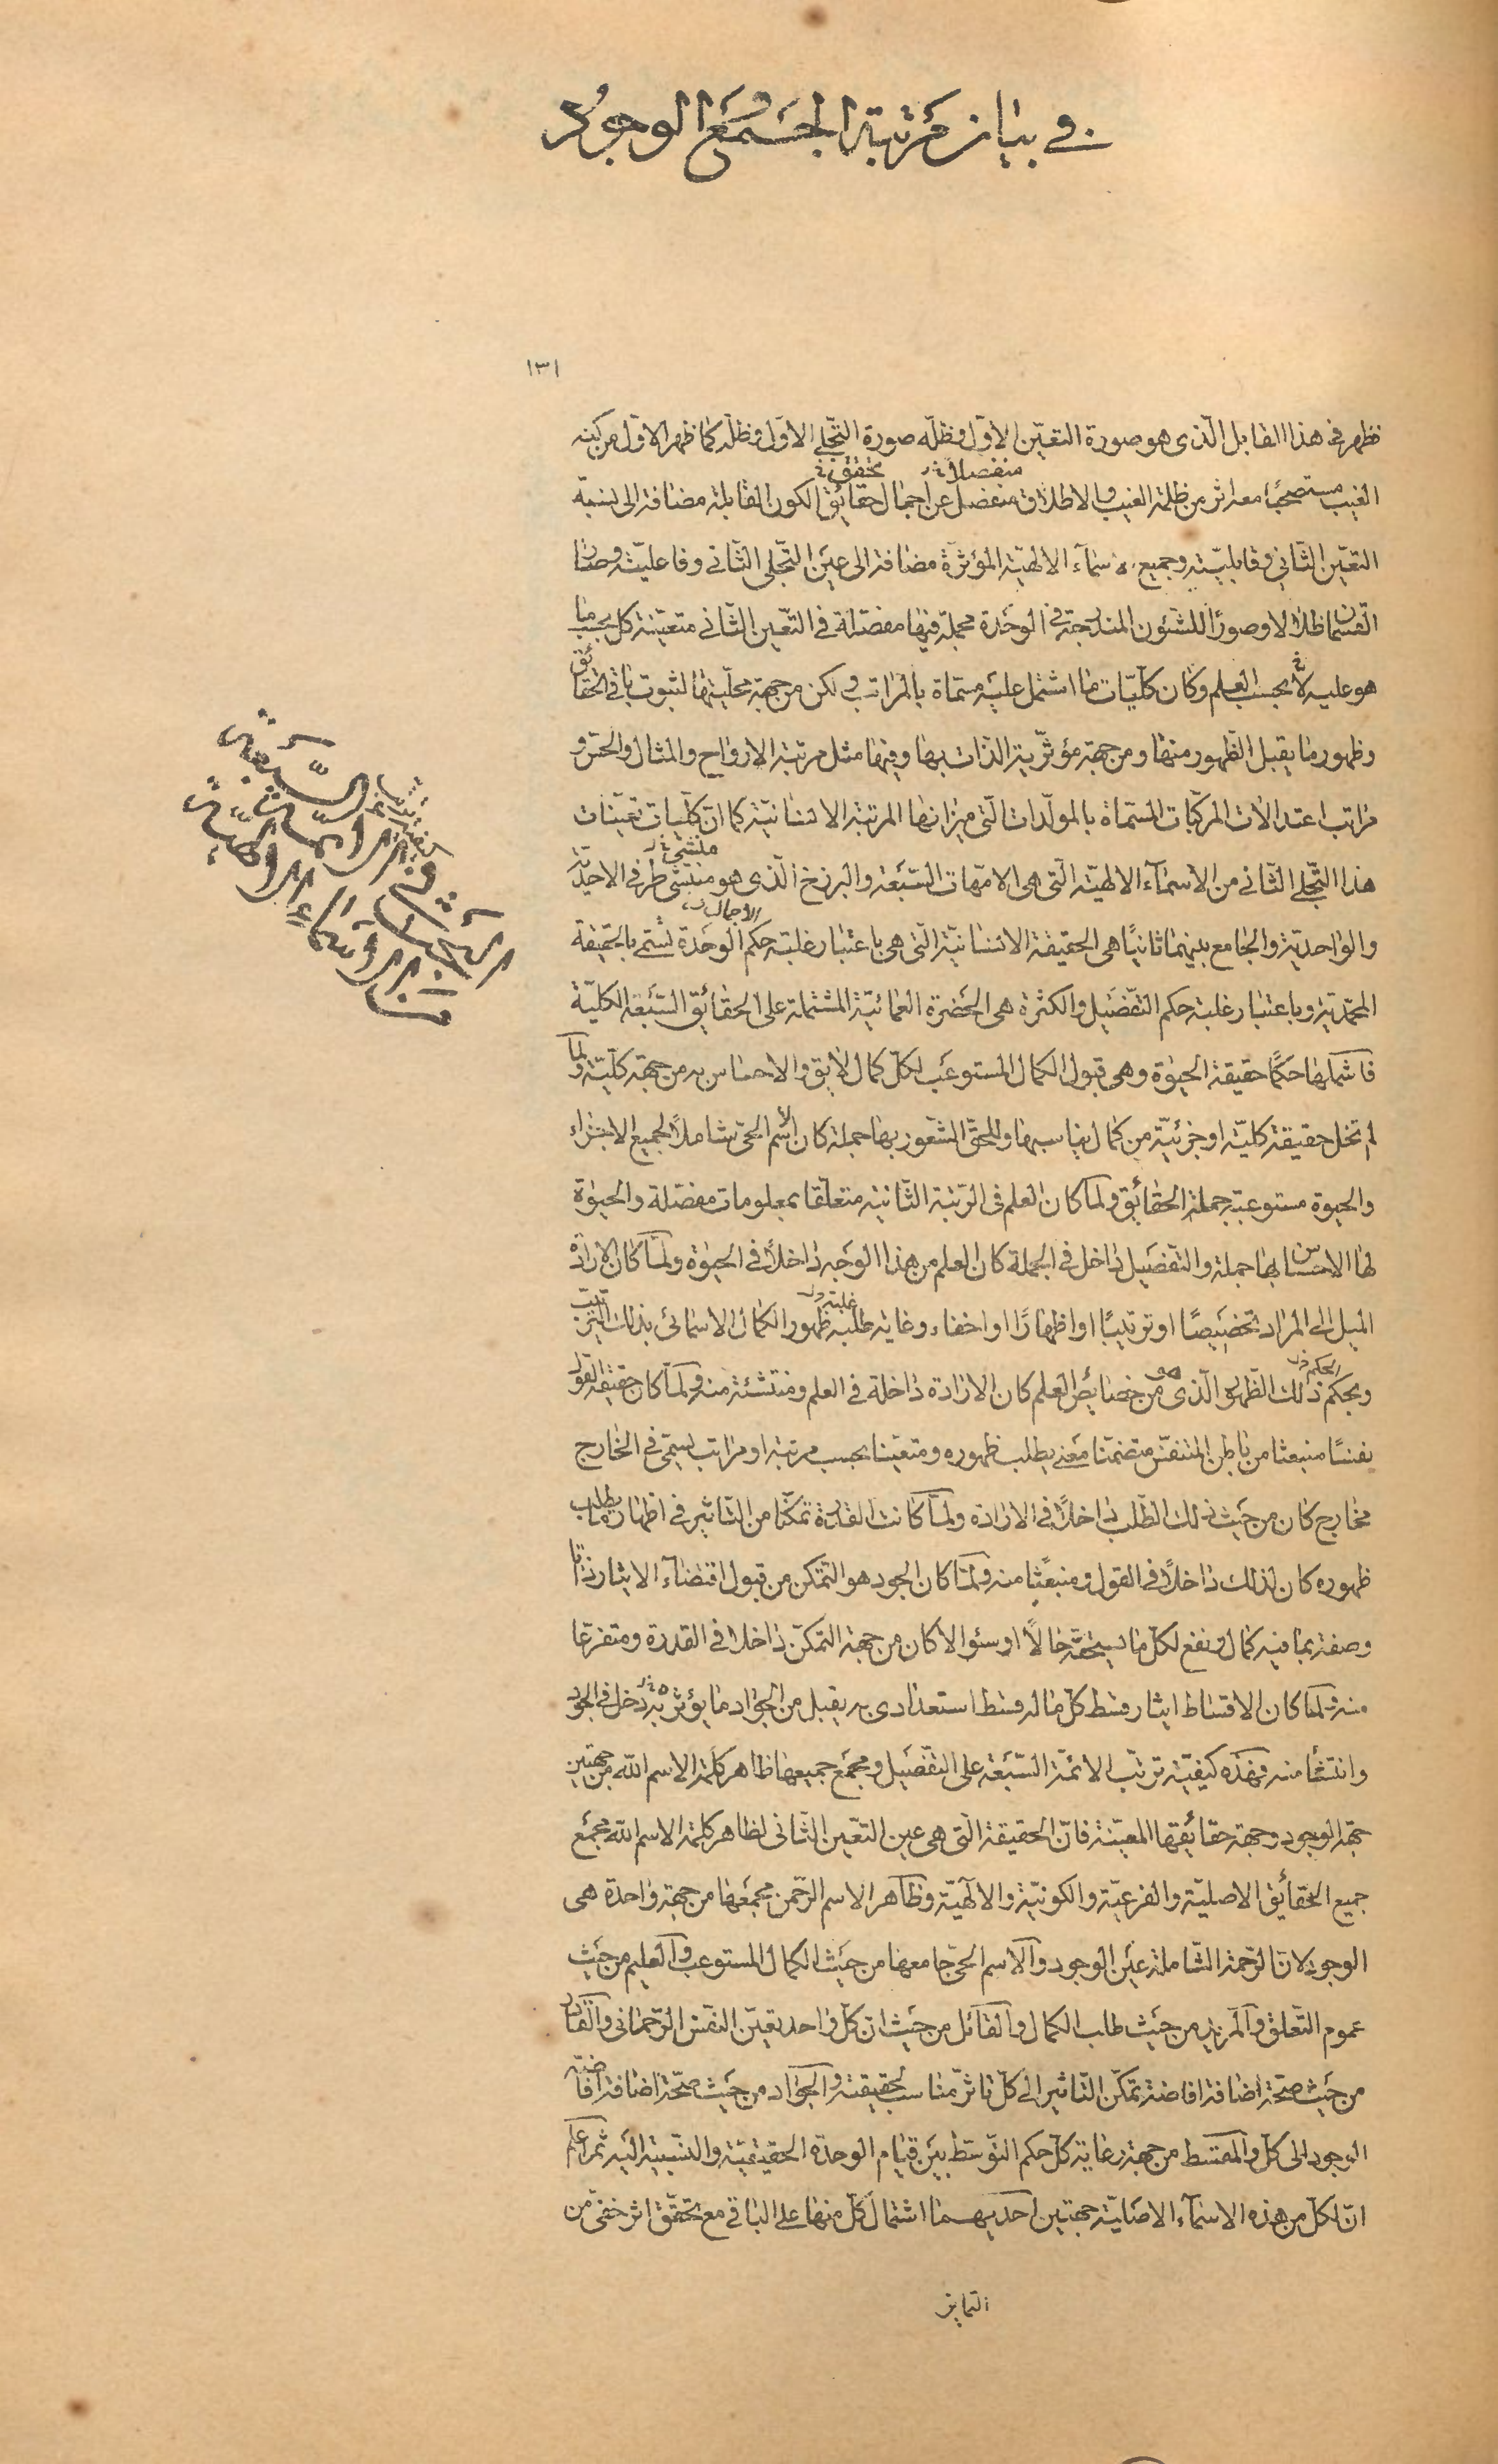 في بيان مرتبة الجمع والوجود
١٣١
فظهر في هذا القابل الّذى هو صورة التعيّن الاوّل وظلّه صورة التجّلي الاوّل وظلّه كما ظهر الاول من كنه
منفصلا تحقق
الغيب مستصحبًا معه اثر من ظلمة الغيب والاطلاق منفصل عن اجمال حقائق الكون القابلة مضافة الى نسبة
التعيّن الثّاني وقابليّته وجميع الاسمآء الالهيّة المؤثرّة مضافة الى عين التّجلى الثّانى وفاعليّته وصارا
القسمان ظلالا وصورًا للشئون المندرجة فى الوحدة مجملة فيها مفصّلة فى التعّين الثّانى متعيّنة كل بحسب ما
هو عليه لا بحسب العلم وكان كلّيّات ما اشتمل عليه مسمّاة بالمراتب ولكن من جهة محلّيتها لثبوت باقى الحقائق
وظهور ما يقبل الظّهور منها ومن جهة مؤثرّية الذات بها وفيها مثل مرتبة الارواح والمثال والحسّ و
مراتب اعتدالات المركّبات المسمّاة بالمولّدات الّتى ميزانها المرتبة الانسانيّة كما انّ كلّيات تعيّنات
منتشئ
هذا التّجلي الثّانى من الاسمآء الالهيّة الّتى هى الامّهات السّبعة والبرزخ الّذى هو منتشئ طرفى الاحديّة
الاجمال
والواحديّة والجامع بينهما ثانيًا هى الحقيقة الانسانيّة الّتى هى باعتبار غلبة حكم الوحدة تسّمى بالحقيقة
المحمّديّة وباعتبار غلبة حكم التّفصيل والكثرة هى الحضرة العمائيّة المشتملة على الحقائق السّبعة الكليّة
فاشملها حكمًا حقيقة الحيوة وهى قبول الكمال المستوعب لكلّ كمال لايق والاحساس به من جهة كلّيّة ولما
لم تخل حقيقة كليّة او جزئيّة من كمال يناسبها والحقّ الشّعور بها جملة كان الاسم الحىّ شاملًا لجميع الاجزاء
والحيوة مستوعبة جملة الحقائق ولمّا كان العلم فى الرّتبة الثّانية متعلّقا بمعلومات مفصّلة والحيوة
لها الاحساس بها جملة والتّفصيل داخل فى الجملة كان العلم من هذا الوجه داخلًا فى الحيوة ولمّا كان الارادة
غلبة
الميل الى المراد تخصيصًا او ترتيبًا او اظهارًا او اخفاء وغاية طلبه ظهور الكمال الاسمائى بذلك الترتيب
الحكم هو
وبحكم ذلك الظّهور الّذى من خصايص العلم كان الارادة داخلة فى العلم ومنتشئة منه ولمّا كان حقيقة القول
نفسًا منبعثا من باطن المتنفّس متضمّنا معنى يطلب ظهوره ومتعيّنا بحسب مرتبة او مراتب يسمّى فى الخارج
مخارج كان من حيث ذلك الطّلب داخلًا فى الارادة ولمّا كانت القدرة تمكّنا من التّأثير فى اظهار ما يطلب
ظهوره كان لذلك داخلًا فى القول ومنبعثًا منه ولمّا كان الجود هو التمكّن من قبول اقتضآء الايثار ذاتا
وصفة بما فيه كمال ونفع لكلّ ما يستحقّه حالًا او سئوالا كان من جهة التمكّن داخلا فى القدرة ومتفرعًا
منه ولمّا كان الاقساط ايثار قسط كلّ ما له قسط استعدادى به يقبل من الجواد ما يؤثر به دخل فى الجود
وانتشأ منه فهذه كيفيّة ترتّب الائمّة السّبعة على التّفصيل ومجمع جميعها ظاهر كلمة الاسم اللّه من جهتين
جهة الوجود وجهة حقائقها المعيّنة فانّ الحقيقة الّتى هى عين التعّين الثّانى لظاهر كلمة الاسم اللّه مجمع
جميع الحقائق الاصليّة والفرعيّة والكونيّة والالٓهيّة وظاهر الاسم الرّحمن مجمعها من جهة واحدة هى
الوجود لانّ الرّحمة الشّاملة عين الوجود والاسم الحىّ جامعها من حيث الكمال المستوعب والعليم من حيث
عموم التّعلق والمريد من حيث طلب الكمال والقائل من حيث ان كلّ واحد تعيّن النفس الرّحمانى والقادر
من حيث صحّة اضافة افاضة تمكّن التّأثير الى كلّ تأثرّ مناسب لحقيقته والجواد من حيث صحّة اضافة افاضة
الوجود الى كلّ والمقسط من جهة رعاية كلّ حكم التّوسّط بين قيام الوحدة الحقيقيّة والنّسبيّة اليه ثم اعلم
انّ لكلّ من هذه الاسمآء الاصليّة جهتين احديهما اشتمال كلّ منها على الباقى مع تحقّق اثر خفىّ من
التمايز
التجلّى الثّانى
من الاسماء الالهيّة